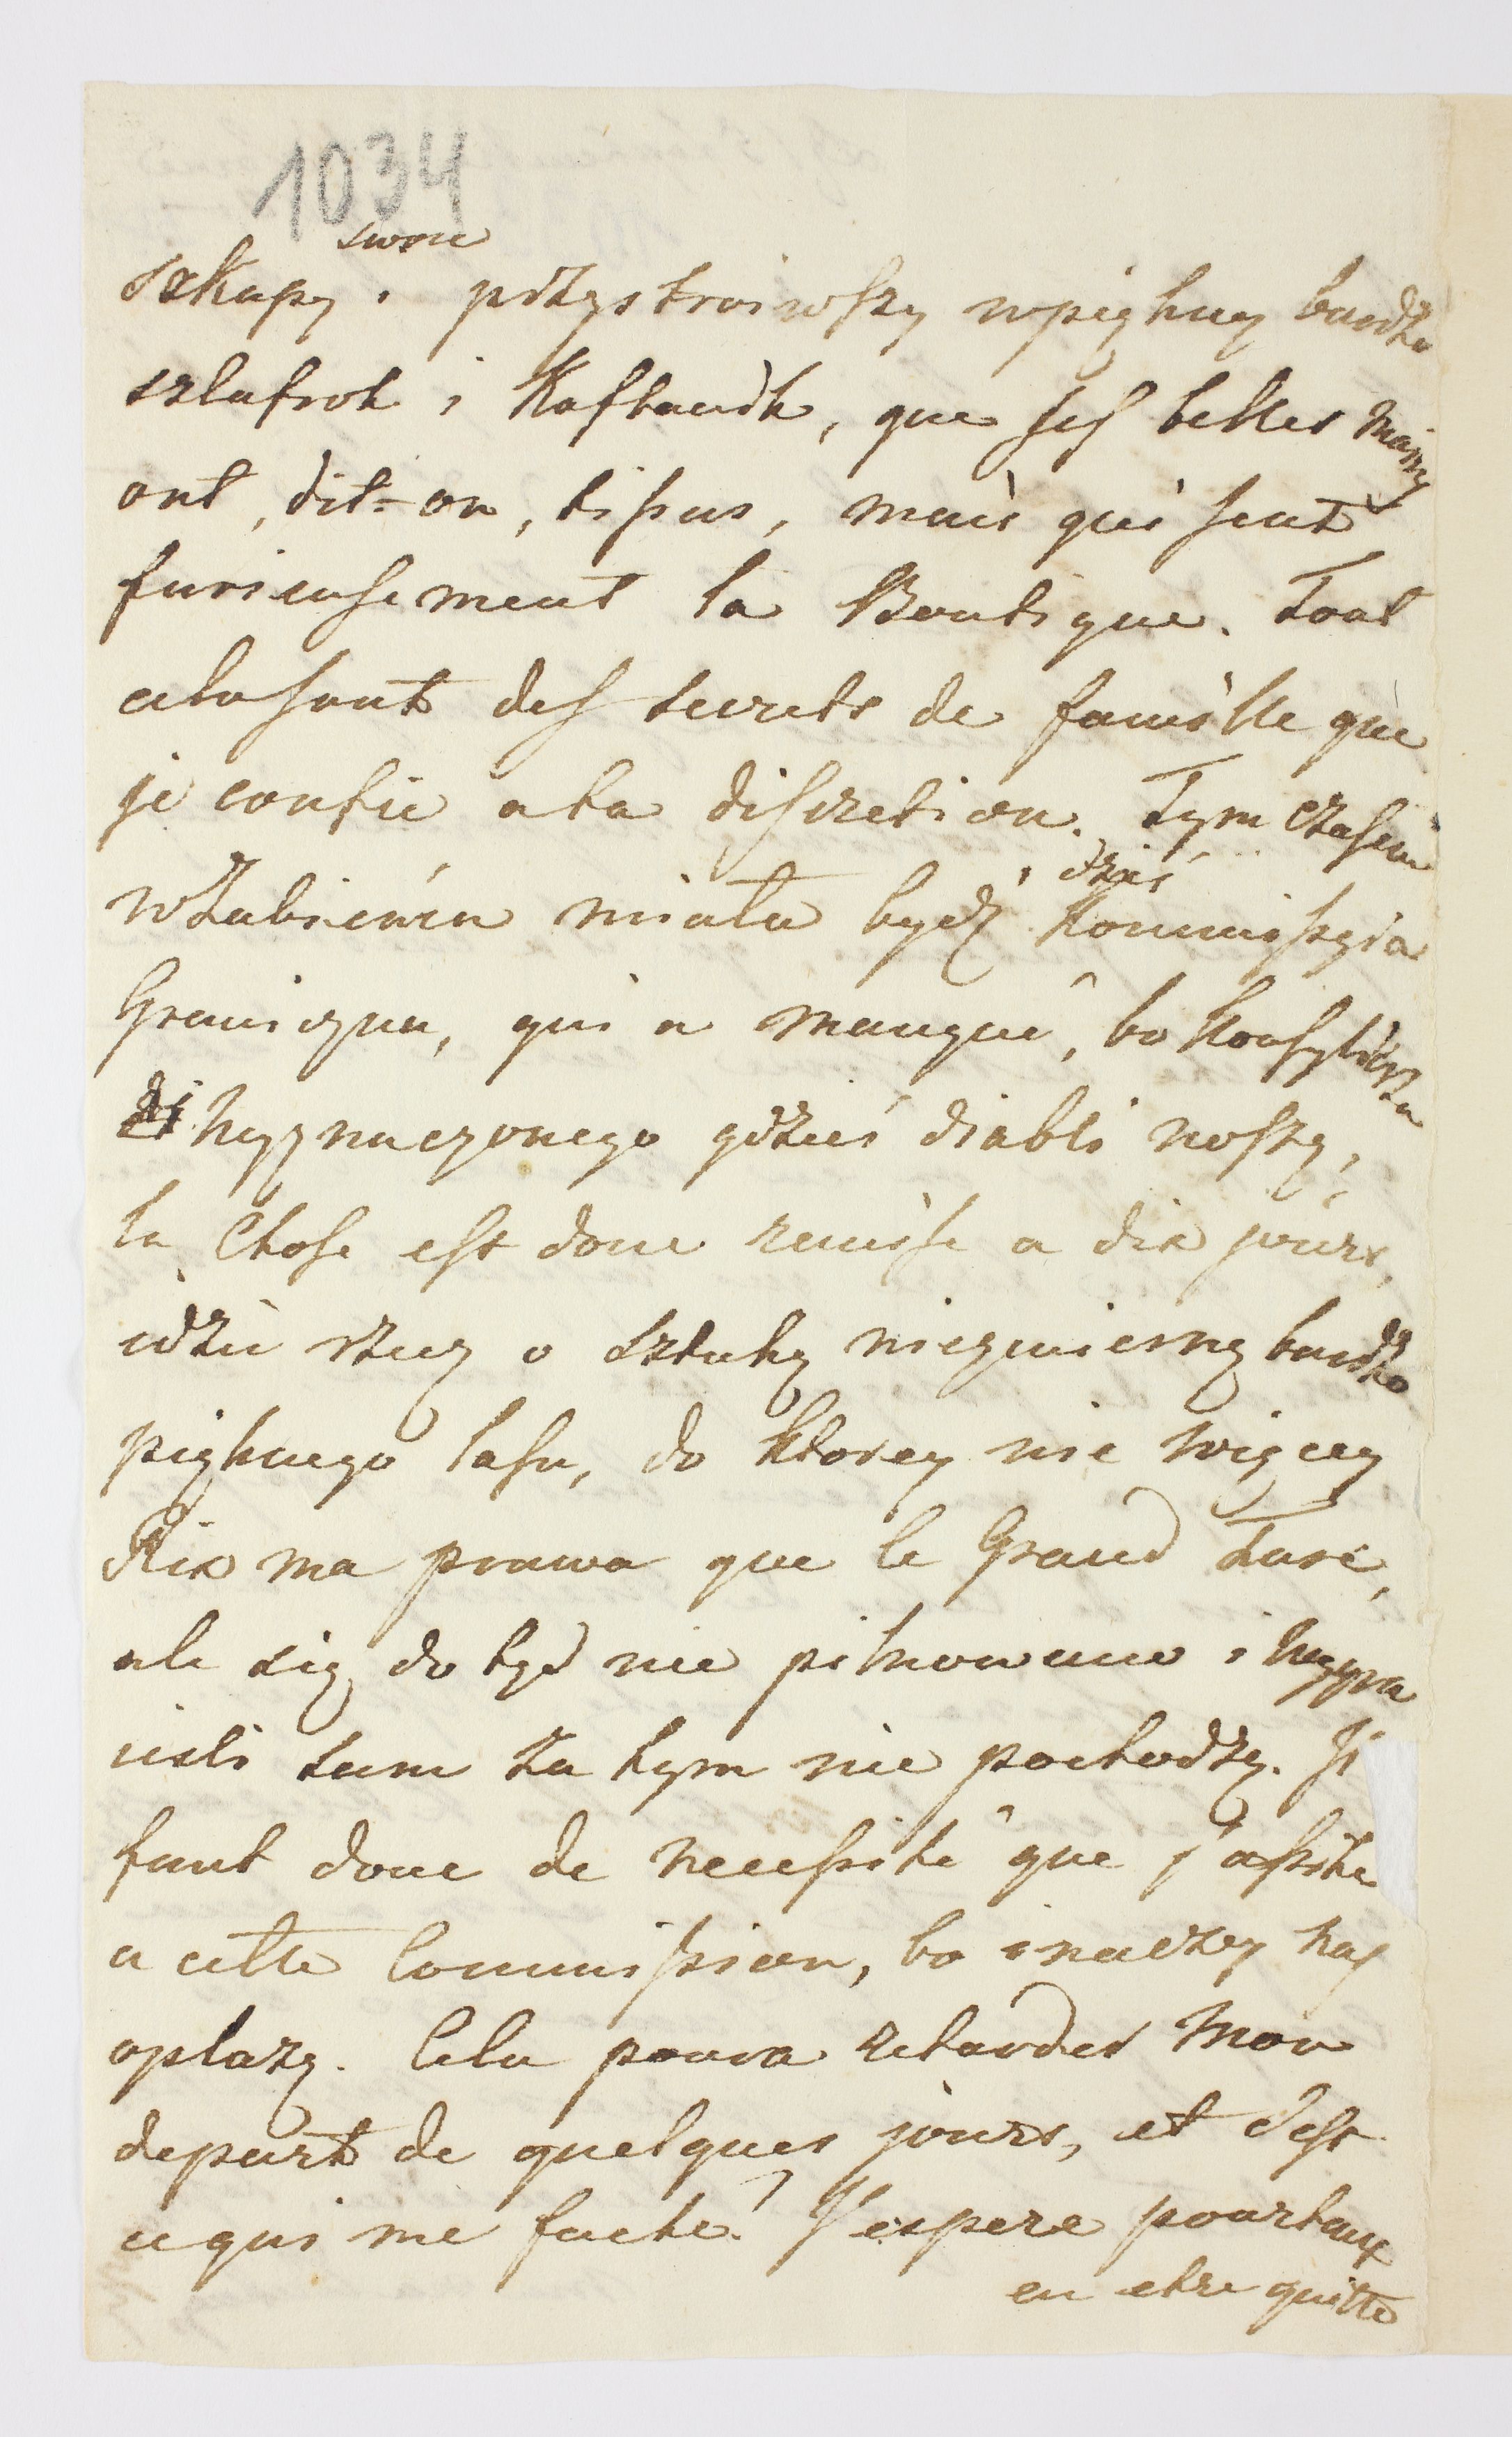 1034
swoie
szkapy i przystroiwszy wpiękny bardzo
szlafrok i Kaftanik, que ses belles mains
ont, dit-on, tissus, mais qui sent
furieusement la Boutique. Tout
cela sont des secrets de famille que
je confie a ta discretion. Tym czasem
dziś
w Żabieńcu miała bydź Kommissyia
Graniczna, qui a manqué, bo Konsyliarza
wyznaczonego gdzieś diabli noszą,
la Chose est donc remise a dix jours,
idzie rzecz o sztukę niezmierną bardzo
pięknego lasu, do ktorey nie więcey
Rix ma prawa que le Grand Turc,
ale się do tąd nie pilnowano i wygra
iesli sam za tym nie pochodzę. Il
faut donc de necessité que j'assiste
a cette Commission, bo inaczey nas
oplazą. Cela pourra retarder mon
depart de quelques jours, et c'est
ce qui me fache. J'espere pourtant
en etre quitte